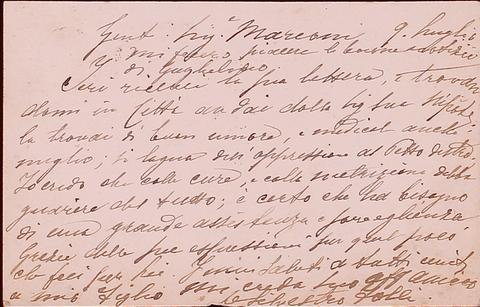 Gent. Sig.ª Marconi 9 Luglio
mi fecero piacere le buone notizie
di Guglielmo
Ieri ricevei la sua lettera, e trovan
domi in Città andai dalla Sig.
la trovai di buon umore, e anche
meglio; si lagna dell'oppressione al petto
Io credo che colle cure, e colla nutrizione debba
guarire del tutto; è certo che ha bisogno
di una grande assistenza e sorveglianza
Grazie delle sue espressioni per quel poco
che feci per lei. I miei saluti a tutti
a mio figlio mi creda suo aff. amico